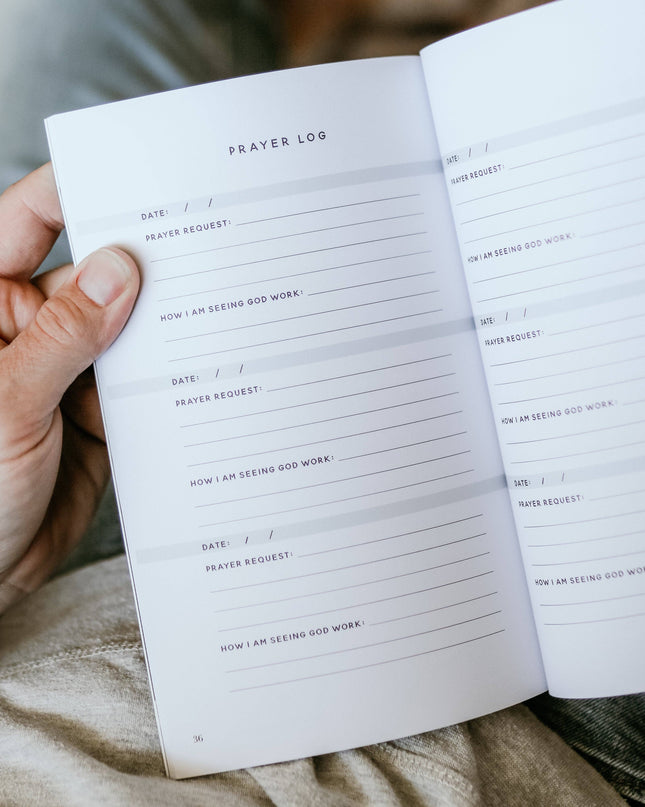 PRAYER LOG
DATE: / /
PRAYER REQUEST:
HOW I AM SEEING GOD WORK:
DATE: / /
PRAYER REQUEST:
HOW I AM SEEING GOD WORK:
DATE: / /
PRAYER REQUEST:
HOW I AM SEEING GOD WORK:
36
DATE: / /
PRAYER REQUEST:
HOW I AM SEEING GOD WORK:
DATE: / /
PRAYER REQUEST:
HOW I AM SEEING GOD WORK:
DATE: / /
PRAYER REQUEST:
HOW I AM SEEING GOD WORK